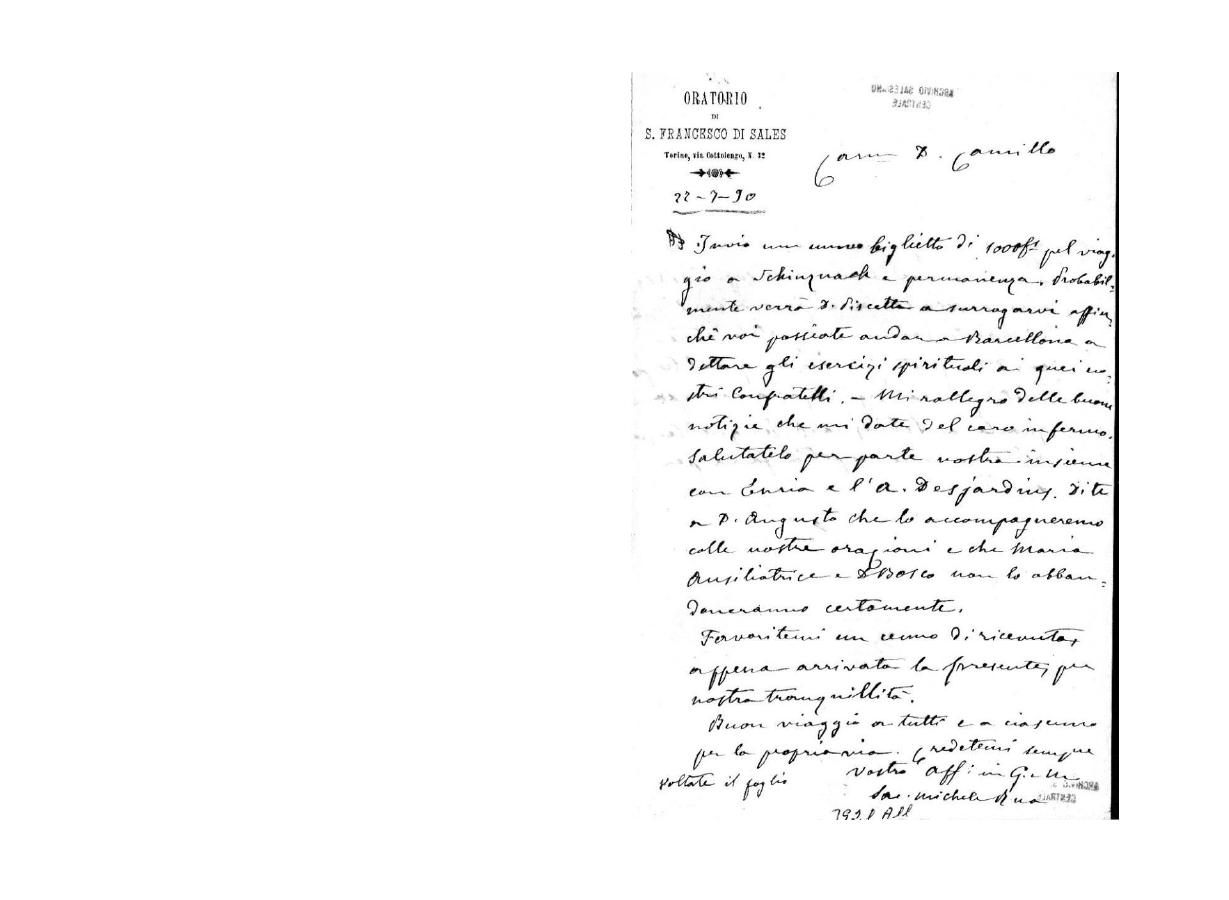 ORATORIO
DI
S. FRANCESCO DI SALES
Torino, via Cottolengo, N. 32
22-7-90
ARCHIVIO SALESIANO
CENTRALE
Carmo D. Camillo
Invio un nuovo biglietto di 1000 fr pel viag-
gio a Schinznach e permanenza. Probabil-
mente verrà D. Piscetta a surrogarvi affin-
chè voi possiate andare a Barcellona a
dettare gli esercizi spirituali a quei no-
stri Confratelli. – Mi rallegro delle buone
notizie che mi date del caro infermo.
Salutatelo per parte nostra insieme
con Enria e l'A. Desjardins. Dite
a D. Augusto che lo accompagneremo
colle nostre orazioni e che Maria
Ausiliatrice e D. Bosco non lo abban-
doneranno certamente.
Favoritemi un cenno di ricevuta,
appena arrivata la presente, per
nostra tranquillità.
Buon viaggio a tutti e a ciascuno
per la propria via. Credetemi sempre
Vostro Aff: in G. e M.
Sac. Michele Rua
voltate il foglio
ARCHIVIO
CENTRALE